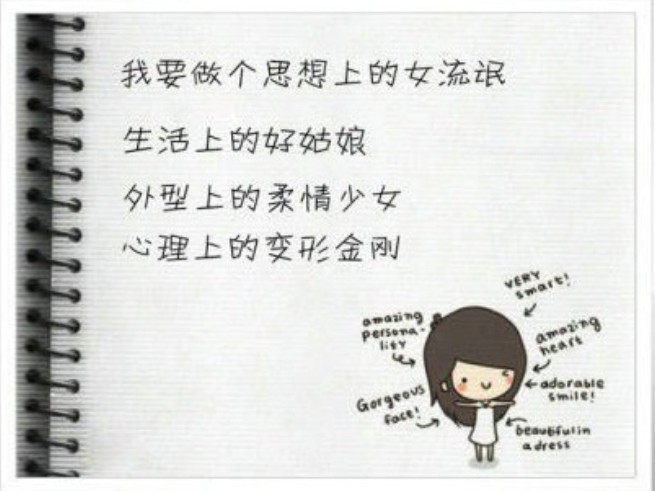 我要做个思想上的女流氓
生活上的好姑娘
外型上的柔情少女
心理上的变形金刚
VERY
smart!
amazing
persona-
lity
amazing
heart
adorable
smile!
Gorgeous
face!
beautiful in
a dress